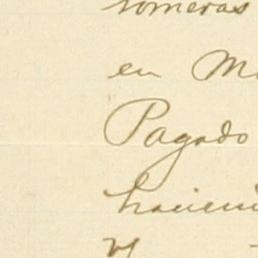 someras
en M
Pagado
haciend
y